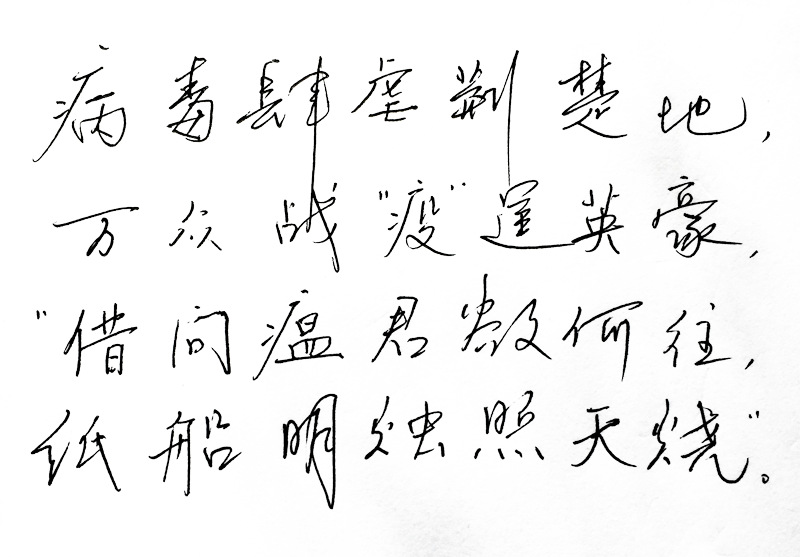 病毒肆虐荆楚地，
万众战“疫”逞英豪，
“借问瘟君欲何往，
纸船明烛照天烧”。